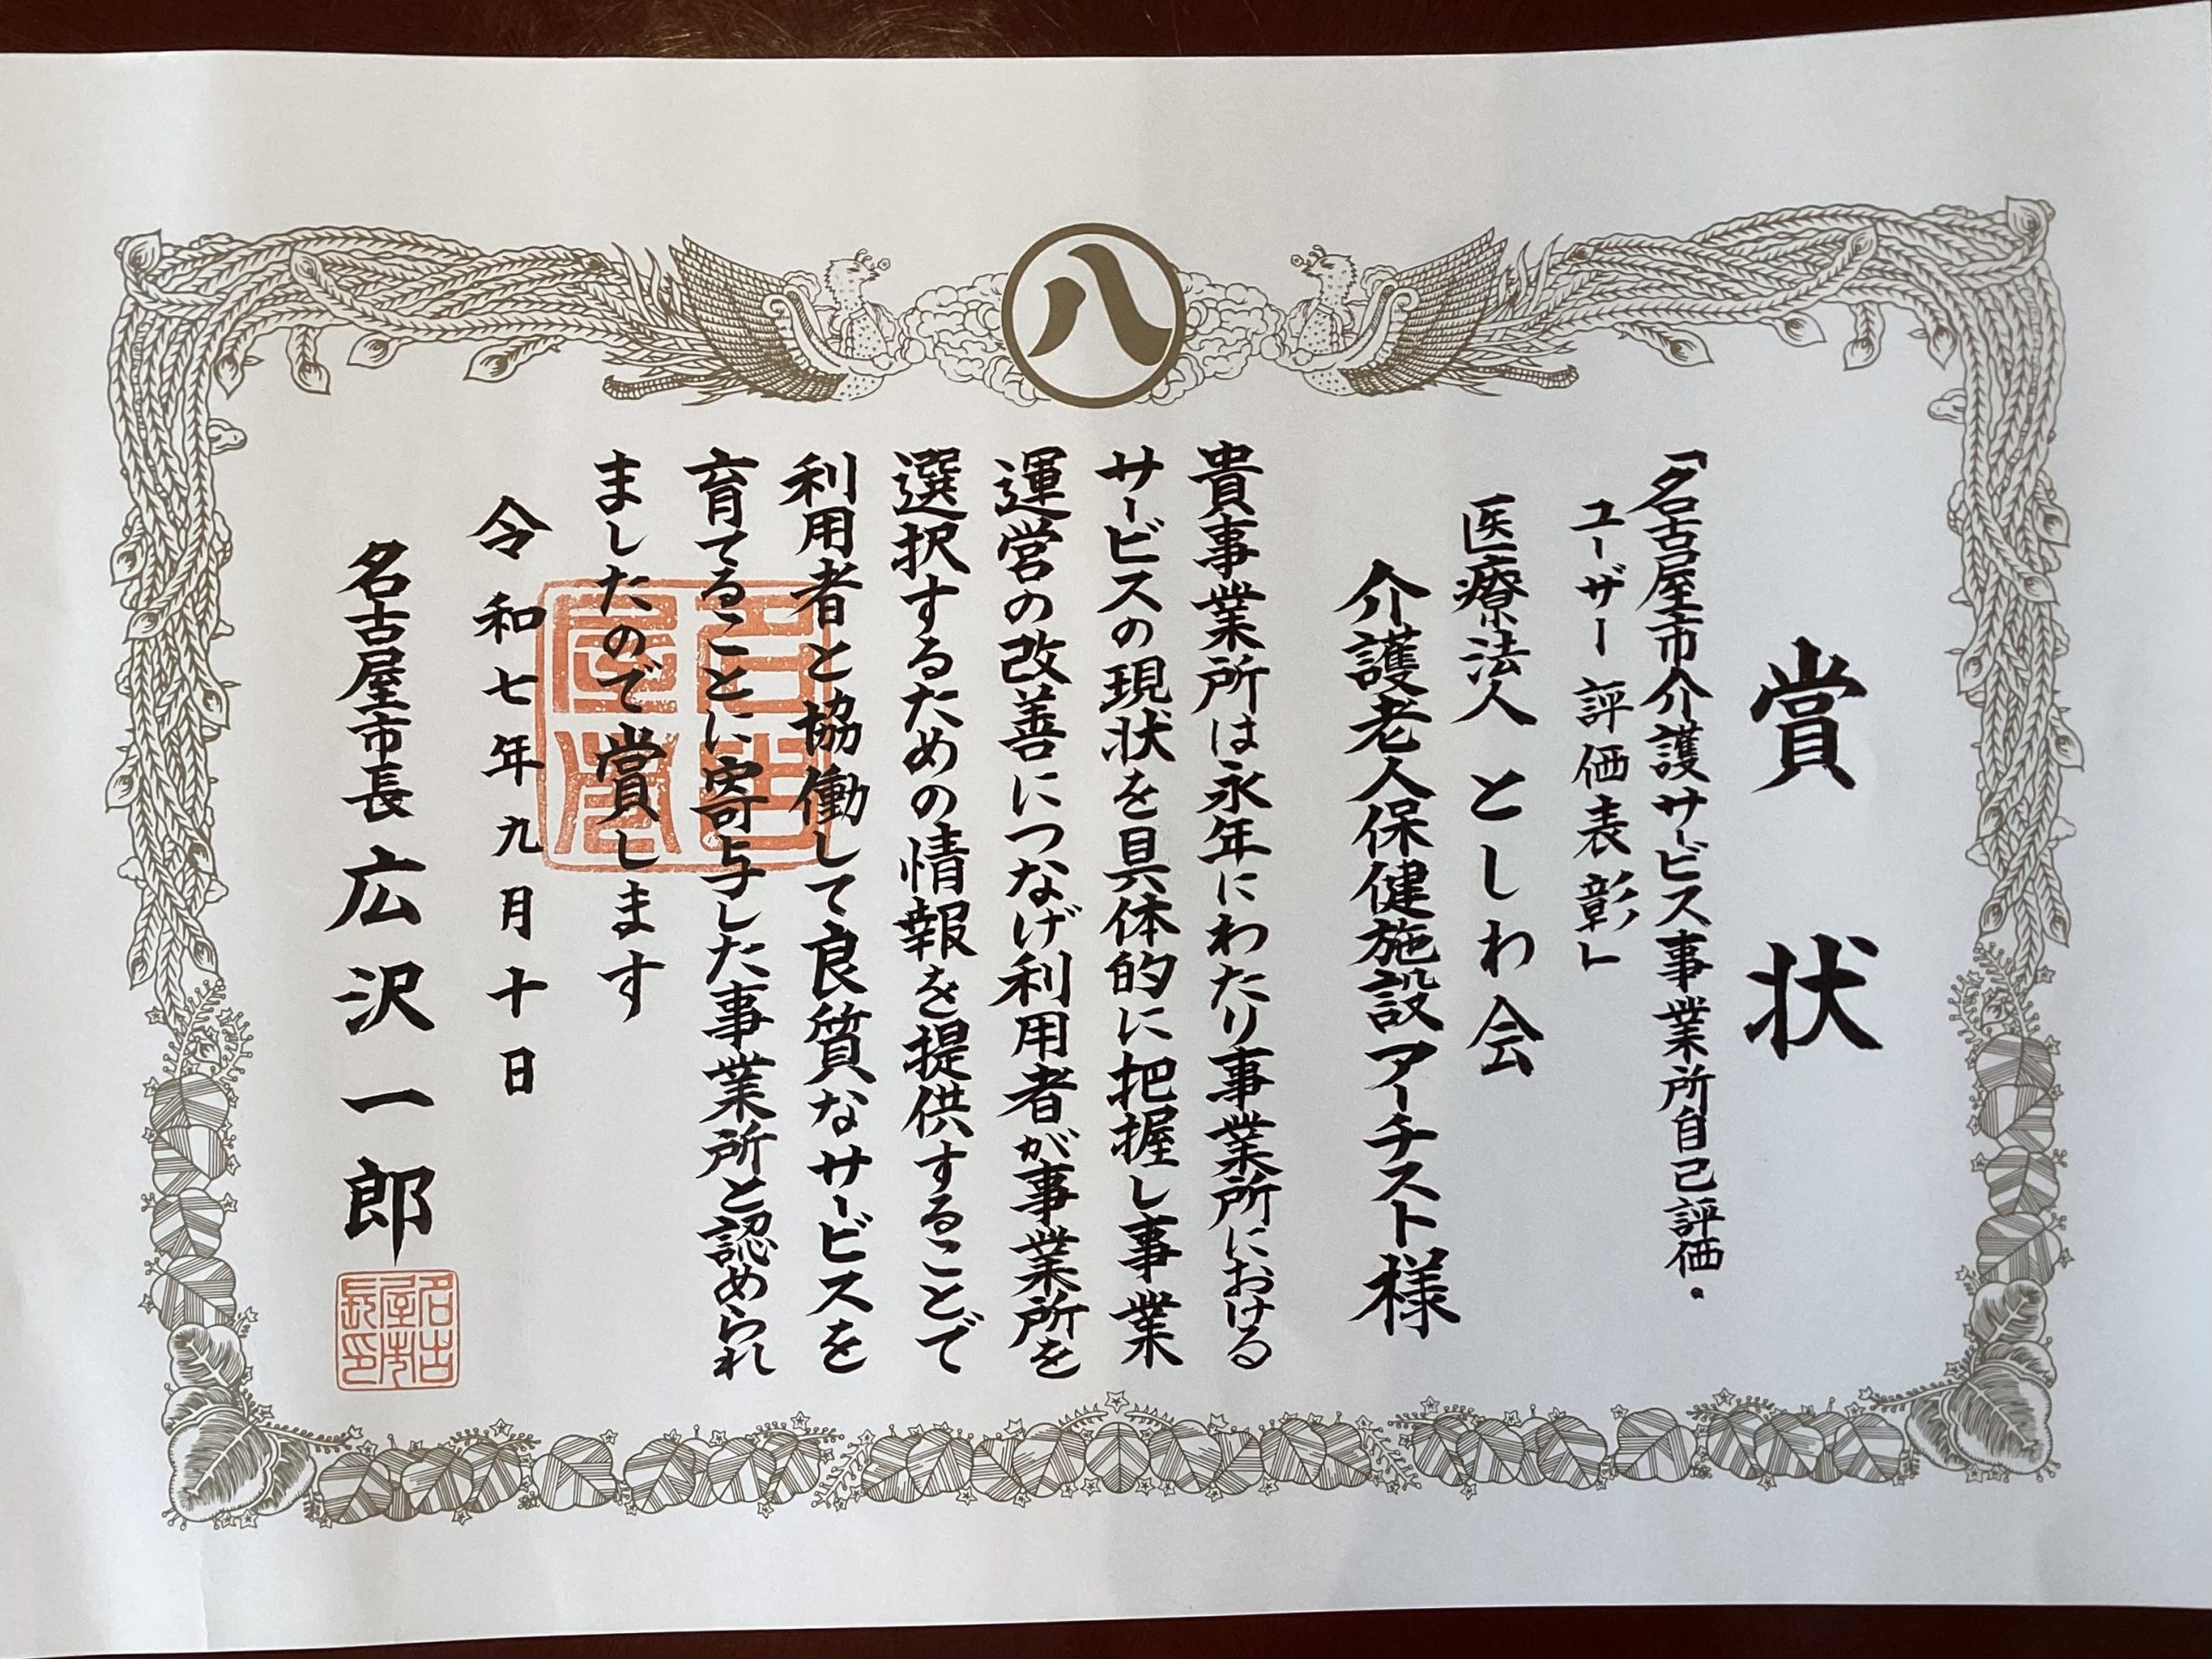 八
賞状
「名古屋市介護サービス事業所自己評価・
ユーザー評価表彰」
医療法人 としわ会
介護老人保健施設アーチスト様
貴事業所は永年にわたり事業所における
サービスの現状を具体的に把握し事業
運営の改善につなげ利用者が事業所を
選択するための情報を提供することで
利用者と協働して良質なサービスを
育てることに寄与した事業所と認められ
ましたので賞します
令和七年九月十日
名古屋市長 広沢一郎
名古
屋市
長印